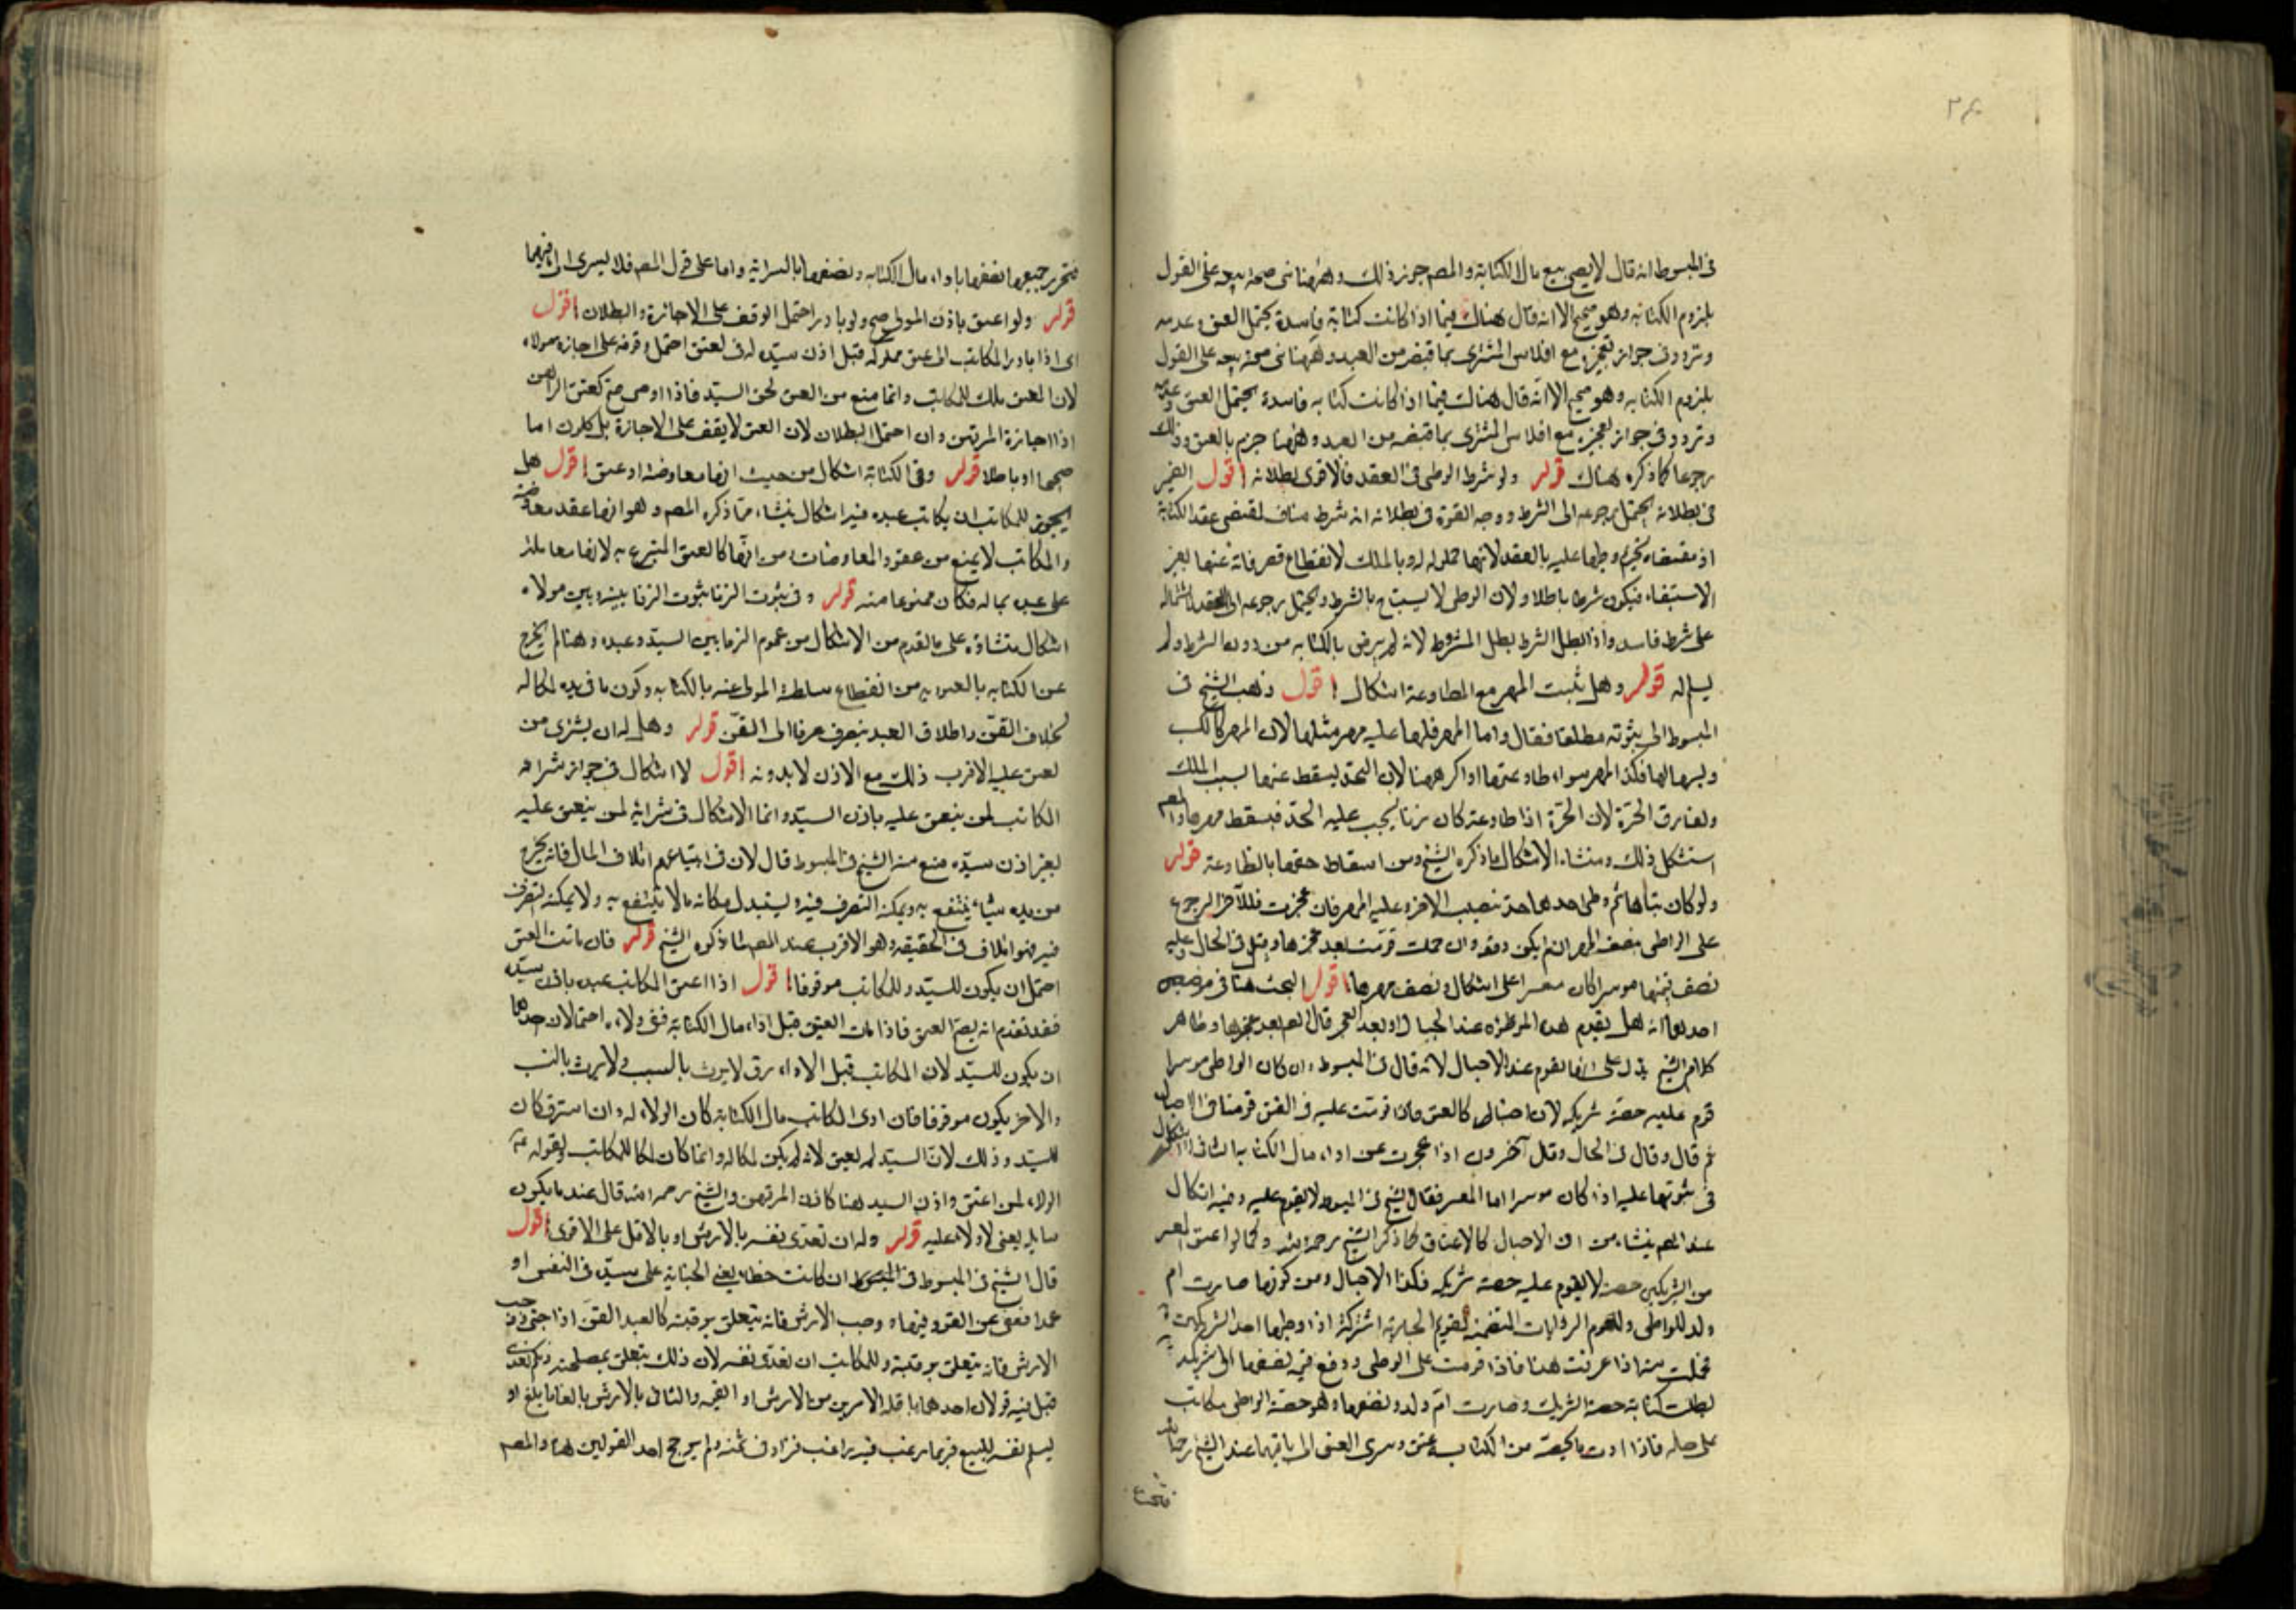 في المبسوط انه قال لا يصح بيع مال الكتابة والمصم جوز ذلك وههنا نى صحته يتجه على القول
بلزوم الكتابه وهو صحيح الا انه قال هناك فيما اذا كانت كتابة فاسدة يحتمل العتق وعدمه
وتردد في جواز تعجيزه مع افلاس المشترى بما قبضه من العبد وههنا نى صحته يتجه على القول
بلزوم الكتابه وهو صحيح الا انه قال هناك فيما اذا كانت كتابه فاسدة يحتمل العتق وعدمه
وتردد في جواز تعجيزه مع افلاس المشترى بما قبضه من العبد وههنا جزم بالعتق وذلك
رجوعا كما ذكره هناك قوله ولو شرط الوطى في العقد فالاقوى بطلانه اقول الضمير
في بطلانه يحتمل رجوعه الى الشرط ووجه القوة في بطلانه انه شرط مناف لمقتضى عقد الكتابة
اذ مقتضاه تحريم وطيها عليه بالعقد لانها مملوله له وبالملك لانقطاع تصرفاته عنها بغير
الاستيفاء فيكون شرطا باطلا ولان الوطى لا يستباح بالشرط ويحتمل رجوعه الى العقد لاشتماله
على شرط فاسد واذا بطل الشرط بطل المشروط لانه لم يرض بالكتابه من دون الشرط ولم
يسلم له قوله وهل يثبت المهر مع المطاوعة اشكال اقول ذهب الشيخ في
المبسوط الى ثبوته مطلقا فقال واما المهر فلها عليه مهر مثلها لان المهر كالكسب
وكسبها لها فكذا المهر سواء طاوعته او اكرهها لان الحد يسقط عنها لسبب الملك
ويفارق الحرة لان الحرة اذا طاوعته كان زنا يجب عليه الحد فيسقط مهرها والمصم
استشكل ذلك ومنشاء الاشكال ما ذكره الشيخ ومن اسقاط حقها بالمطاوعة قوله
ولو كاتبا امتهما ثم وطى احدهما حدّ بنصيب الاخر وعليه المهر فان عجزت فللآخر الرجوع
على الواطى بنصف المهر ان لم يكن دفعه وان حملت قومت بعد عجزها وقيل في الحال وعليه
نصف قيمتها موسرا كان او معسرا على اشكال ونصف مهرها اقول البحث هنا في موضعين
احدهما انه هل يقوم هذه الموطوءة عند الاحبال او بعد العجز قال المصم بعد عجزها وظاهر
كلام الشيخ يدل على انها تقوم عند الاحبال لانه قال في المبسوط وان كان الواطى موسرا
قوم عليه حصة شريكه لان احبالها كالعتق وان قومت عليه في القن قومنا في الاحبال
ثم قال وقال في الحال وقال آخرون اذا عجزت عن اداء مال الكتابه الثانى الاشكال
في ثبوتها عليه اذا كان موسرا اما المعسر فقال الشيخ في المبسوط لا يقوم عليه وفيه اشكال
عند المصم ينشاء من ان الاحبال كالاعتاق كما ذكر الشيخ رحمه الله وكما لو اعتق المعسر
من الشريكين حصته لا يقوم عليه حصة شريكه فكذا الاحبال ومن كونها صارت ام
ولد للواطى ولعموم الروايات المتضمنة لتقويم الجارية المشتركة اذا وطيها احد الشريكين
فحملت منه اذا عرفت هذا فاذا قومت على الوطى ودفع قيمة نصفها الى شريكه
بطلت كتابة حصة الشريك وصارت ام ولد ونصفها وهو حصة الواطى مكاتب
على حاله فاذا ادت ما يخصه من الكتابه عتق وسرى العتق الى باقيها عند الشيخ رحمه الله
فتحرر
فتحرر جميعها نصفها باداء مال الكتابه ونصفها بالسراية واما على قول المصم فلا يسرى الى باقيها
قوله ولو اعتق باذن المولى صح ولو بادر احتمل الوقف على الاجازة والبطلان اقول
اى اذا بادر المكاتب الى عتق مملوكه قبل اذن سيده له في العتق احتمل وقوفه على اجازة مولاه
لان العتق ملك للمكاتب وانما منع من العتق لحق السيد فاذا رضى صح كعتق الراهن
اذا اجازة المرتهن وان احتمل البطلان لان العتق لا يقف على الاجازة بل يكون اما
صحيحا او باطلا قوله وفي الكتابة اشكال من حيث انها معاوضة او عتق اقول هل
يجوز للمكاتب ان يكاتب عبده فيه اشكال ينشاء مما ذكره المصم وهو انها عقد معاوضة
والمكاتب لا يمنع من عقود المعاوضات ومن انها كالعتق المتبرع به لانها معاملة
على عبده بماله فكان ممنوعا منه قوله وفي ثبوت الزنا ثبوت الربا بينه وبين مولاه
اشكال منشاؤه على ما تقدم من الاشكال من عموم الربا بين السيد وعبده وهنا لم يخرج
عن الكتابه بالعبودية من انقطاع سلطنة المولى عنه بالكتابه وكون ما في يده لمكاله
بخلاف القن واطلاق العبد ينصرف عرفا الى القن قوله وهل له ان يشترى من
يعتق عليه الاقرب ذلك مع الاذن لا بدونه اقول لا اشكال في جواز شراء
المكاتب لمن ينعتق عليه باذن السيد وانما الاشكال في شرائه لمن ينعتق عليه
بغير اذن سيده منع منه الشيخ في المبسوط قال لان في ابتياعهم اتلاف المال فانه يخرج
من يده شياء ينتفع به ويمكنه التصرف فيه ويستبدل مكانه ما لا ينتفع به ولا يمكنه التصرف
فيه فهو اتلاف في الحقيقه وهو الاقرب عند المصم لما ذكره الشيخ قوله فان مات العتيق
احتمل ان يكون للسيد وللمكاتب موقوفا اقول اذا اعتق المكاتب عبده باذن سيده
فقد تقدم انه يصح العتق فاذا مات العتيق قبل اداء مال الكتابة ففى ولاءه احتمالان احدهما
ان يكون للسيد لان المكاتب قبل الاداء رق لا يرث بالسبب ولا يرث بالنسب
والاخر يكون موقوفا فان ادى المكاتب مال الكتابة كان الولاء له وان استرق كان
للسيد وذلك لان السيد لم يعتق لانه لم يكن لمكاله وانما كان ملكا للمكاتب ولقوله عم
الولاء لمن اعتق واذن السيد هنا كاذن المرتهن والشيخ رحمه الله قال عندنا يكون
سايبه يعنى لا ولاء عليه قوله وله ان تفدى نفسه بالارش او بالاقل على الاقوى اقول
قال الشيخ في المبسوط في المبسوط ان كانت خطا يعنى الجناية على سيده في النفس او
عمدا فعفى عن القود فيها وجب الارش فانه يتعلق برقبته كالعبد القن اذا جنى وجب
الارش فانه يتعلق برقبته وللمكاتب ان يفدى نفسه لان ذلك يتعلق بمصلحته وبكم يفدى
قيل فيه قولان احدهما باقل الامرين من الارش او القيمة والثانى بالارش بالغا ما بلغ او
يسلم نفسه للبيع فربما يرغب فيه راغب فزاد في ثمنه ولم يرجح احد القولين هنا والمصم